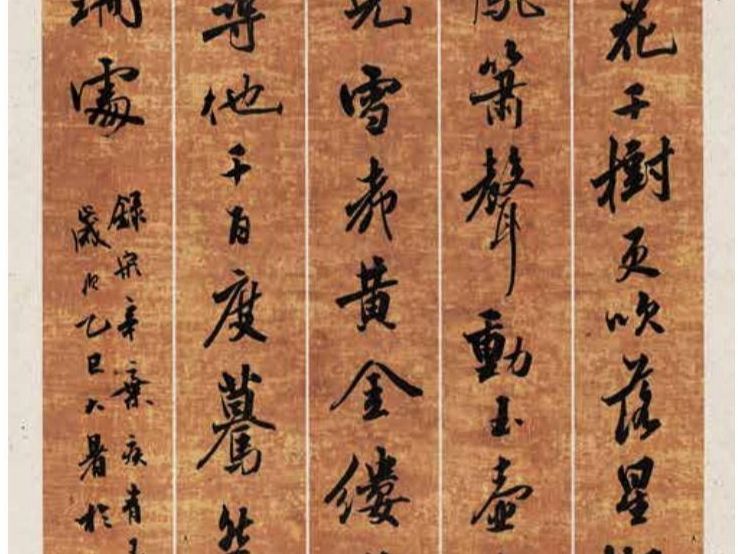 花千樹更吹落星
鳳簫聲動玉壺
兒雪柳黃金縷
尋他千百度驀然
珊處
錄宋辛棄疾青
歲次乙巳大暑於